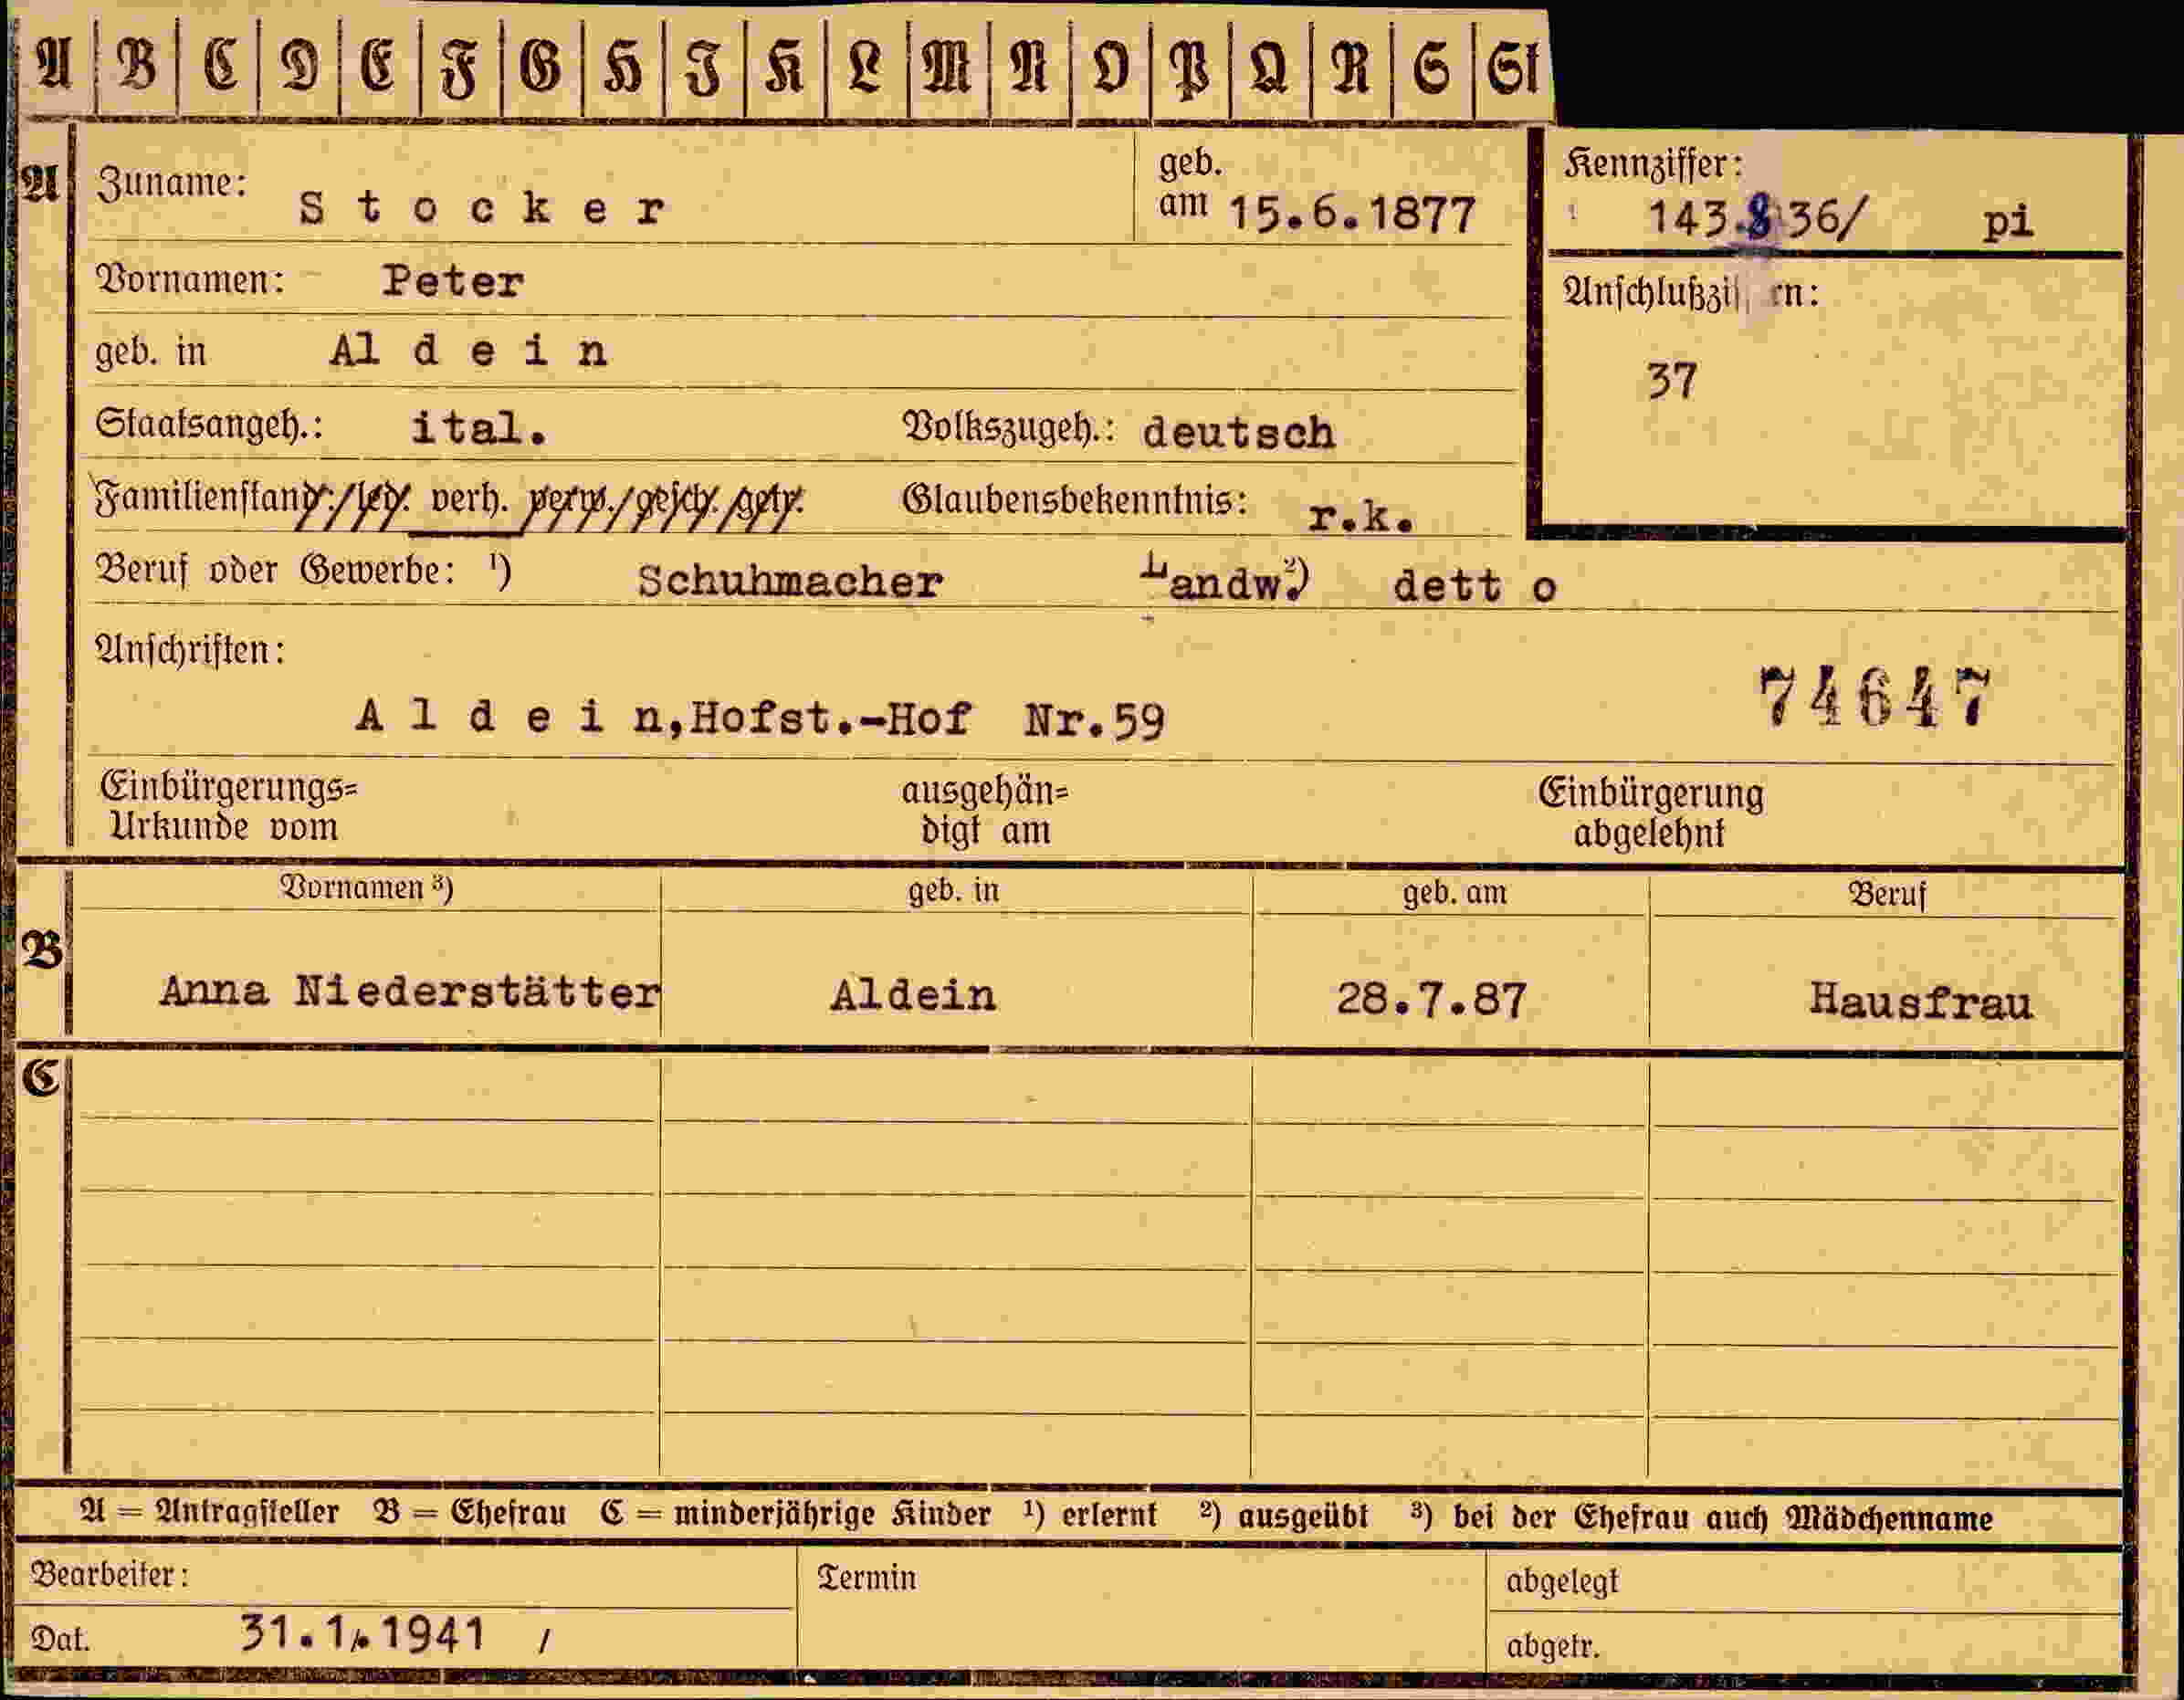 A B C D E F G H I K L M N O P Q R S St
A Zuname: Stocker geb. am 15.6.1877 Kennziffer: 143.836/ pi
Vornamen: Peter Anschlußzi rn:
geb. in Aldein 37
Staatsangeh.: ital. Volkszugeh.: deutsch
Familienstand:/led. verh. verw./gesch./getr. Glaubensbekenntnis: r.k.
Beruf oder Gewerbe: ¹) Schuhmacher Landw.²) detto
Anschriften:
Aldein,Hofst.-Hof Nr.59 74647
Einbürgerungs= ausgehän= Einbürgerung
Urkunde vom digt am abgelehnt
Vornamen ³) geb. in geb. am Beruf
B Anna Niederstätter Aldein 28.7.87 Hausfrau
C
A = Antragsteller B = Ehefrau C = minderjährige Kinder ¹) erlernt ²) ausgeübt ³) bei der Ehefrau auch Mädchenname
Bearbeiter: Termin abgelegt
Dat. 31.1.1941 / abgetr.